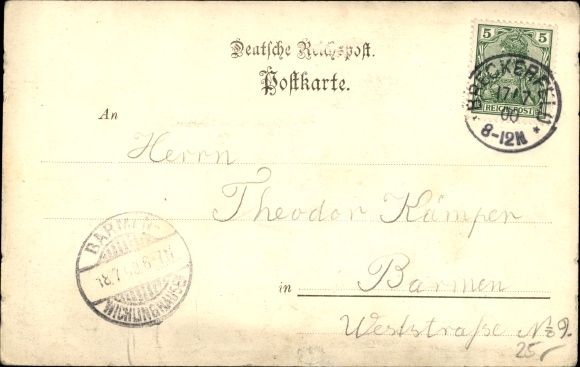 Deutsche Reichspost.
Postkarte.
5 5
REICHSPOST
BRECKERFELD
17/7
00
8-12N *
An
Herrn
Theodor Kämper
in Barmen
Weststraße No 9.
25,-
BARMEN-
18.7.00.6-7N
WICHLINGHAUSEN